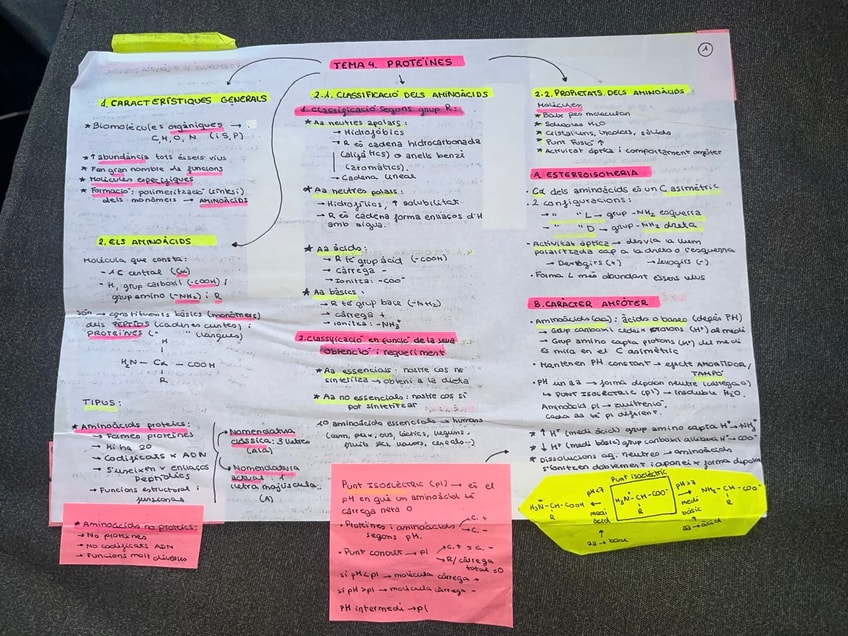 TEMA 4. PROTEÏNES
1
1. CARACTERÍSTIQUES GENERALS
* Biomolècules orgàniques →
C, H, O, N (i S, P)
* ↑ abundància tots éssers vius
* Fan gran nombre de funcions
* Molècules específiques
* Formació: polimerització (síntesi)
dels monòmers → AMINOÀCIDS
2. ELS AMINOÀCIDS
Molècula que consta:
- 1 C central (Cα)
- H, grup carboxil (-COOH) i
grup amino (-NH₂) i R
Són → constituents bàsics (monòmers)
dels PÈPTIDS (cadenes curtes) i
PROTEÏNES (" " llargues)
H
H₂N - Cα - COOH
R
TIPUS:
* Aminoàcids proteics:
→ Formen proteïnes
→ Hi ha 20
→ Codificats x ADN
→ S'uneixen x enllaços
peptídics
→ Funcions estructural i
funcional
→ Nomenclatura
clàssica: 3 lletres
(Ala)
→ Nomenclatura
actual: 1
lletra majúscula
(A)
* Aminoàcids no proteics:
→ No proteïnes
→ No codificats ADN
→ Funcions molt diverses
2.1. CLASSIFICACIÓ DELS AMINOÀCIDS
1. Classificació segons grup R:
* Aa neutres apolars:
→ Hidrofòbics
→ R és cadena hidrocarbonada
(alifàtics) o anells benzè
(aromàtics).
→ Cadena lineal
* Aa neutres polars:
→ Hidrofílics, ↑ solubilitat
→ R és cadena forma enllaços d'H
amb aigua.
* Aa àcids:
→ R té grup àcid (-COOH)
→ càrrega -
→ Ionitza: -COO⁻
* Aa bàsics:
→ R té grup base (-NH₂)
→ càrrega +
→ ionitza: -NH₃⁺
2. Classificació en funció de la seva
obtenció i requeriment
* Aa essencials: nostre cos no
sintetitza → obtení a la dieta
* Aa no essencials: nostre cos sí
pot sintetitzar
10 aminoàcids essencials → humans
(carn, peix, ous, làctics, llegums,
fruits sec, llavors, cereals...)
Punt ISOELÈCTRIC (pI) → és el
pH en què un aminoàcid té
càrrega neta 0
· Proteïnes i aminoàcids c. +
segons pH. c. -
· Punt concret → pI → c. + = c. -
→ R/càrrega
total = 0
si pH < pI → molècula càrrega +
si pH > pI → molècula càrrega -
PH intermedi → pI
2.2. PROPIETATS DELS AMINOÀCIDS
Molècules:
* Baix pes molecular
* Solubles H₂O
* Cristal·lins, incolors, sòlids
* Punt Fusió ↑
* Activitat òptica i comportament amfòter
A. ESTEREOISOMERIA
· Cα dels aminoàcids és un C asimètric
· 2 configuracions:
→ " " L → grup -NH₂ esquerra
→ " " D → grup -NH₂ dreta
· Activitat òptica → desvia la llum
polaritzada cap a la dreta o l'esquerra
→ Dextrògirs (+) → Levògirs (-)
· Forma L més abundant éssers vius
B. CARÀCTER AMFÒTER
· Aminoàcids (aa): àcids o bases (depèn PH)
→ Grup carboxil cedeix protons (H⁺) al medi
→ Grup amino capta protons (H⁺) del medi
es mira en el C asimètric
· Mantenen PH constant → efecte AMORTIDOR/
TAMPÓ
· PH un aa → forma dipolar neutre (càrrega 0)
↳ PUNT ISOELÈCTRIC (pI) → insoluble H₂O.
Aminoàcid pI → zwitterió,
cada aa té pI diferent.
* ↑ H⁺ (medi àcid) grup amino capta H⁺ → NH₃⁺
* ↓ H⁺ (medi bàsic) grup carboxil allibera H⁺ → COO⁻
* Dissolucions aq. neutres → aminoàcids
s'ionitzen doblement i apareix forma dipolar
Punt isoelèctric
H₃N⁺-CH-COOH
R
pH<7
medi
àcid
H₃N⁺-CH-COO⁻
R
pH>7
medi
bàsic
NH₂-CH-COO⁻
R
aa → base
aa → àcid